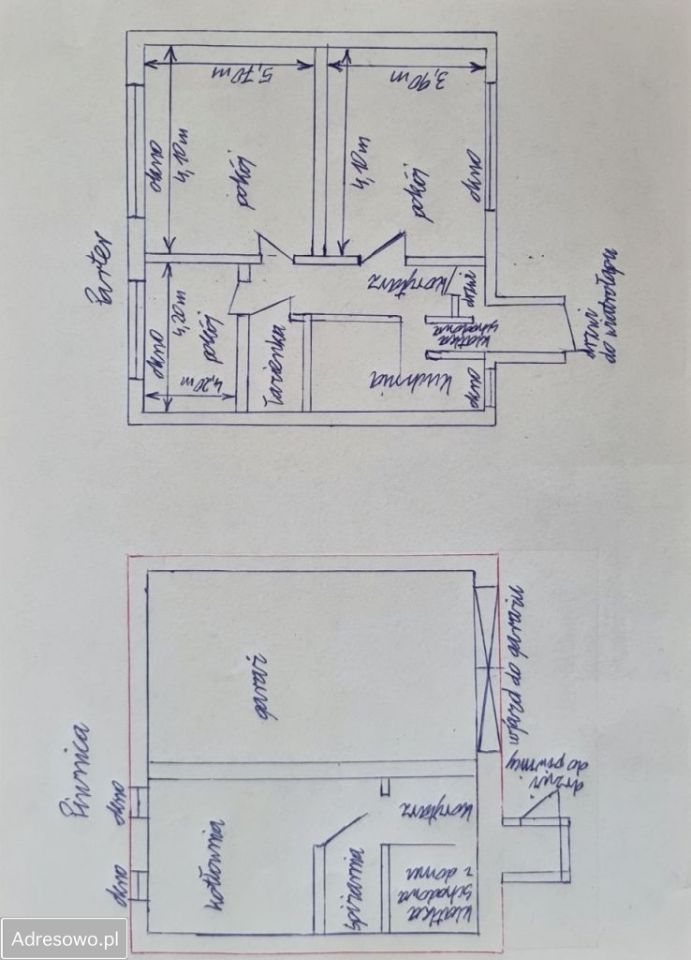 Parter
5,70 m
3,90 m
okno
4,10 m
pokój
4,10 m
pokój
okno
okno
4,20 m
pokój
4,20 m
łazienka
korytarz
drzwi
klatka
schodowa
kuchnia
okno
drzwi
do wiatrołapu
Piwnica
garaż
wjazd do garażu
okno
okno
kotłownia
spiżarnia
korytarz
klatka
schodowa
z domu
drzwi
do piwnicy
Adresowo.pl